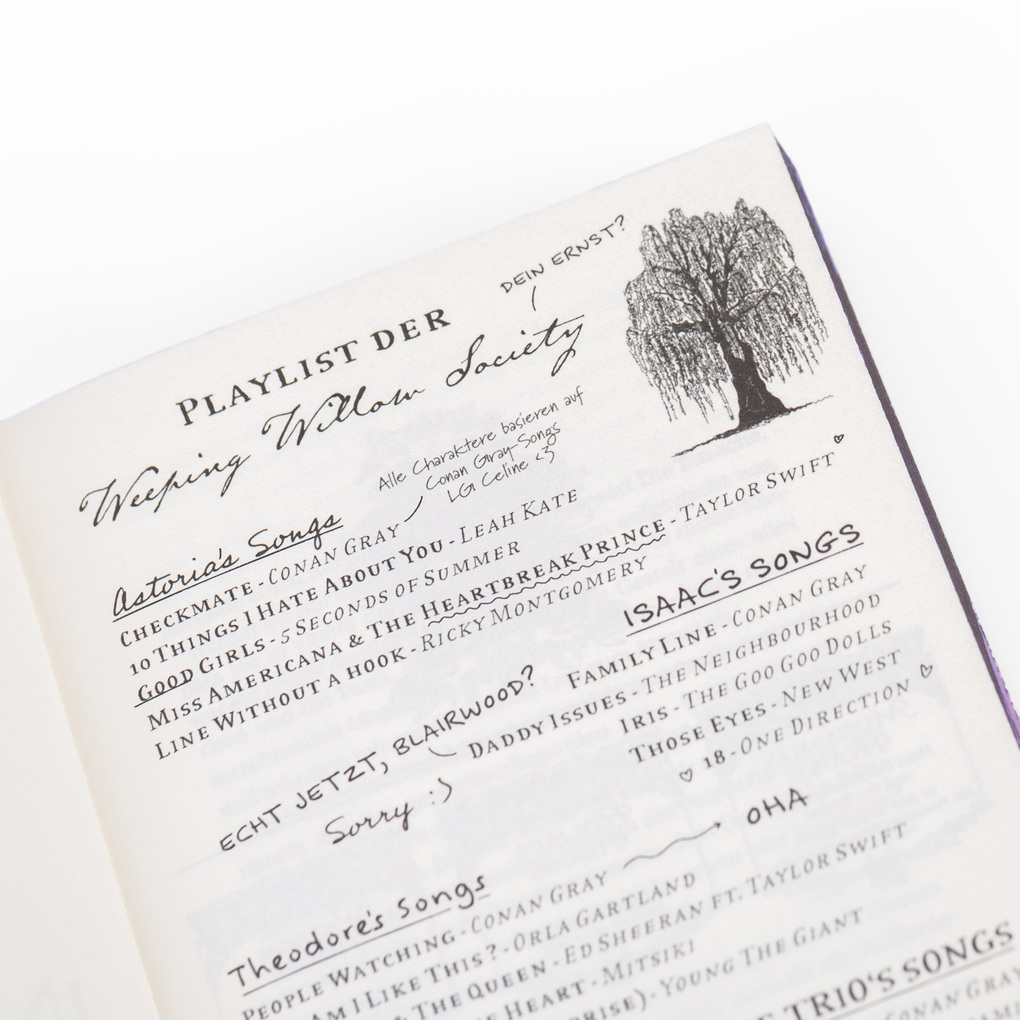 DEIN ERNST?
PLAYLIST DER
Weeping Willow Society
Alle Charaktere basieren auf
Conan Gray-Songs
LG Celine <3
Astoria's Songs
CHECKMATE - CONAN GRAY
10 THINGS I HATE ABOUT YOU - LEAH KATE
GOOD GIRLS - 5 SECONDS OF SUMMER
MISS AMERICANA & THE HEARTBREAK PRINCE - TAYLOR SWIFT ♡
LINE WITHOUT A HOOK - RICKY MONTGOMERY
ISAAC'S SONGS
FAMILY LINE - CONAN GRAY
DADDY ISSUES - THE NEIGHBOURHOOD
IRIS - THE GOO GOO DOLLS
THOSE EYES - NEW WEST
♡ 18 - ONE DIRECTION ♡
ECHT JETZT, BLAIRWOOD?
Sorry :)
Theodore's Songs
PEOPLE WATCHING - CONAN GRAY → OHA
AM I LIKE THIS? - ORLA GARTLAND
THE QUEEN - ED SHEERAN FT. TAYLOR SWIFT
HEART - MITSKI
YOUNG THE GIANT
TRIO'S SONGS
CONAN GRAY